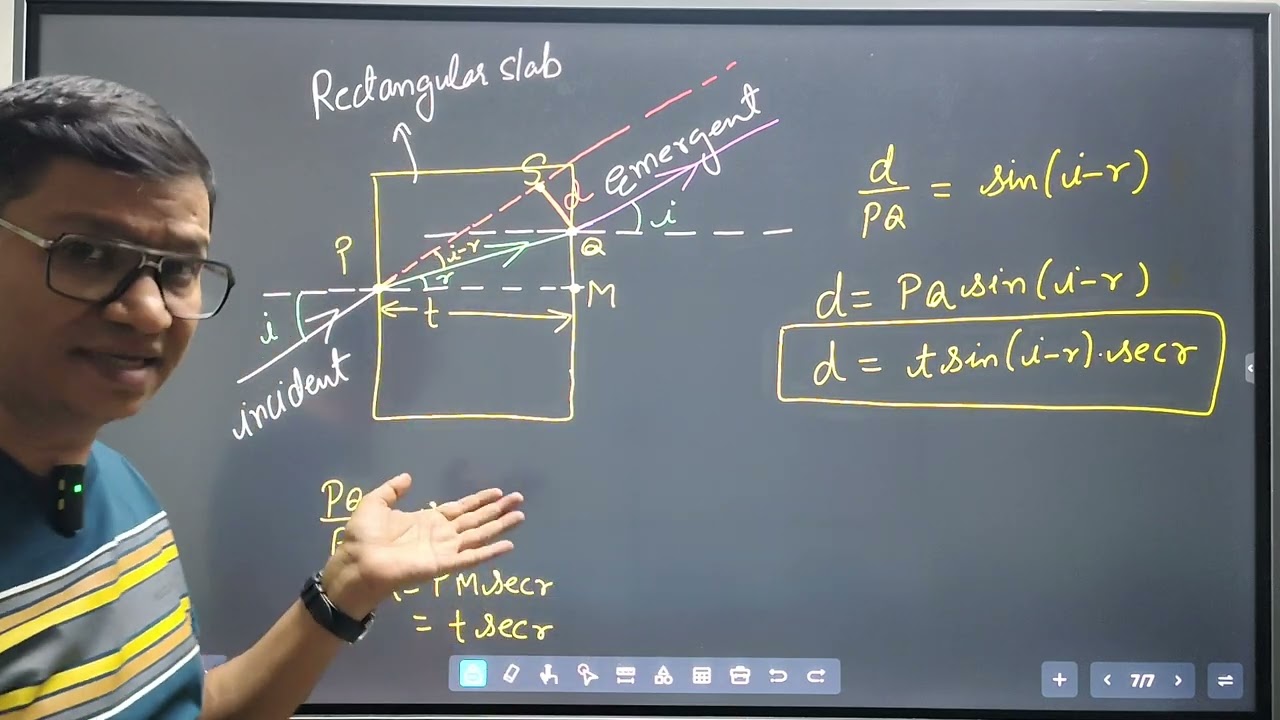 Rectangular slab
S
d
emergent
P
i-r
r
Q
i
t
M
i
incident
d/PQ = sin(i-r)
d = PQ sin(i-r)
d = t sin(i-r).sec r
PQ
= PM sec r
= t sec r
7/7